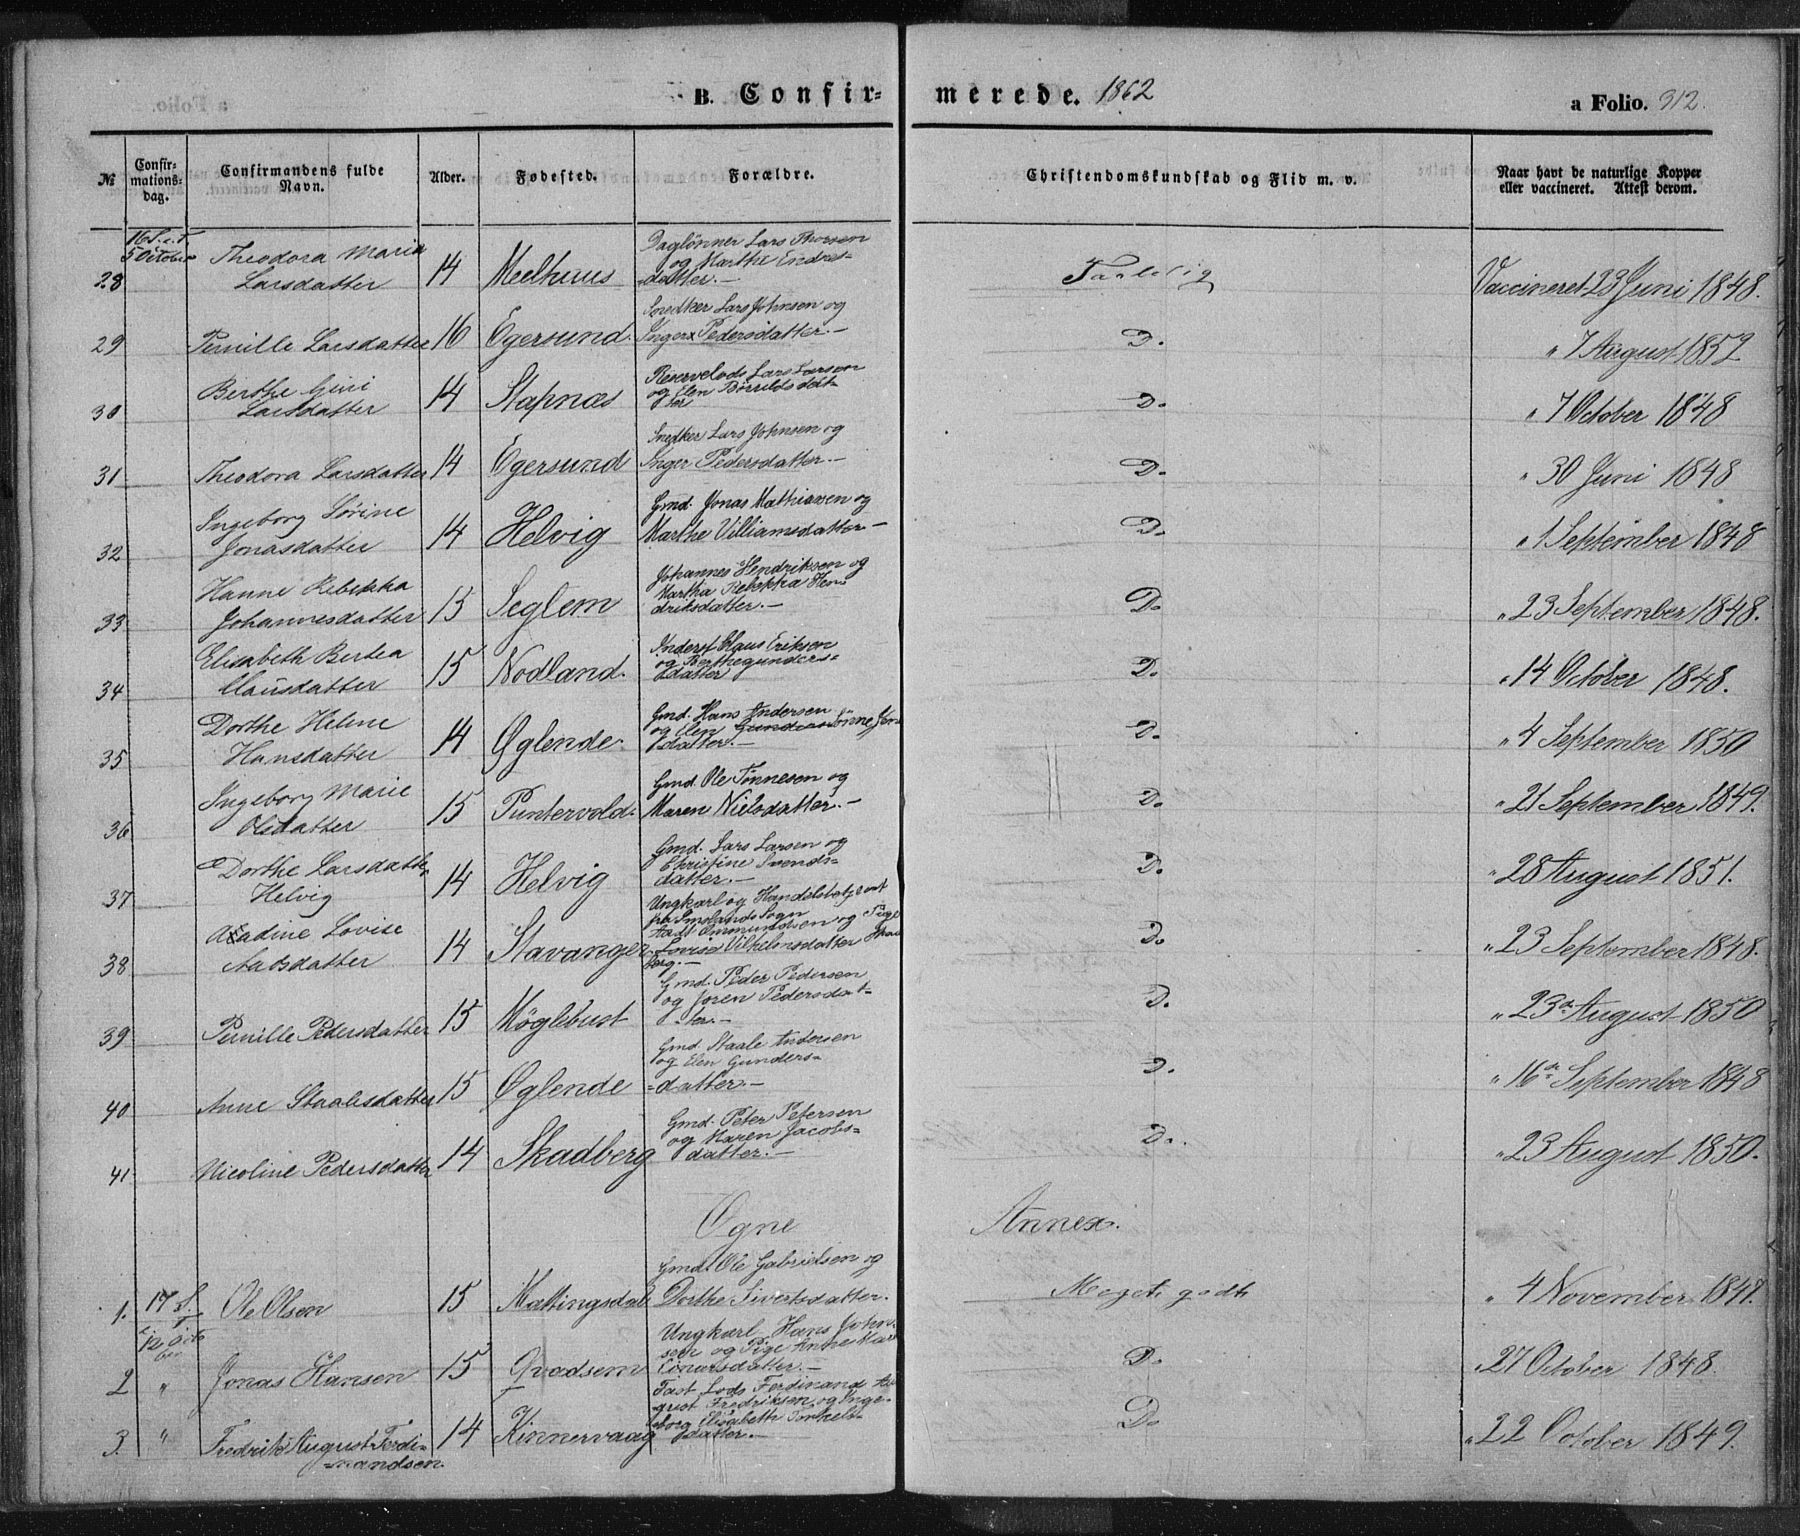 B. Confir=
merede. 1862
a Folio. 312.
№ Confir-mations-dag. Confirmandens fulde Navn. Alder. Fødested. Forældre. Christendomskundskab og Flid m. v. Naar havt de naturlige Kopper eller vaccineret. Attest derom.
16 S. e. T.
5 October
Theodora Maria
28 Larsdatter 14 Meelhuus
Daglønner Lars Thorsen
og Marthe Endres-
datter.-
Taalelig Vaccineret 23 Juni 1848.
29 Pernille Larsdatter 16 Egersund.
Snedker Lars Johnsen og
Inger Pedersdatter.-
D. " 7 August 1852
Berthe Gini
30 Larsdatter 14 Stapnæs
Reservelods Lars Larsen
og Elen Børrildsdat-
ter
D. " 7 October 1848
31 Theodora Larsdatter 14 Egersund
Snedker Lars Johnsen og
Inger Pedersdatter.-
D. " 30 Juni 1848
Ingeborg Sørine
32 Jonasdatter 14 Helvig
Gmd. Jonas Mathiassen og
Marthe Villiamsdatter.-
D. " 1 September 1848
Hanne Rebekka
33 Johannesdatter 15 Seglem
Johannes Hendriksen og
Martha Rebekka Hen-
driksdatter.-
D. " 23 September 1848.
Elisabeth Bertea
34 Clausdatter 15 Nodland.
Inderst Claus Eriksen
og Berthe Gunders-
datter
D. " 14 October 1848.
Dorthe Helene
35 Hansdatter 14 Øglende.
Gmd. Hans Andersen
og Elen Gunders Tønne
datter.-
D. " 4 September 1850
Ingeborg Marie
36 Olsdatter 15 Puntervold.
Gmd. Ole Tønnesen og
Maren Nielsdatter.-
D. " 21 September 1849.
Dorthe Larsdatter
37 Helvig 14 Helvig
Gmd. Lars Larsen og
Christine Svends-
datter.-
D. " 28 August 1851.
Lovise
38 Aadsdatter 14 Stavanger
Ungkarl og Handelsbetjent
fra Sogn
Aadt Ommundsen og Pige
Lovise Vilhelmsdatter
berg.-
D. " 23 September 1848.
39 Pernille Pedersdatter 15 Møglebust
Gmd. Peder Pedersen
og Joren Pedersdat-
ter.-
D. " 23de August 1850
40 Anne Staalesdatter 15 Øglende
Gmd. Staale Andersen
og Elen Gunders-
datter.-
D. " 16de September 1848
41 Nicoline Pedersdatter 14 Skadberg
Gmd. Peter Petersen
og Maren Jacobs-
datter.-
D. " 23 August 1850.
Ogne Annex.
1. 17 S. e. T. Ole Olsen 15 Mattingsdal
Gmd. Ole Gabrielsen og
Dorthe Sivertsdatter.
Meget godt " 4 November 1847.
12 Octo
ber
2 " Jonas Hansen 15 Qvadsem
Ungkarl Hans John-
sen og Pige Anne Mar
datter.-
D. " 27 October 1848.
3. " Fredrik August Ferdi-
nandsen. 14 Kinnervaag
Fast Lods Ferdinand Au
gust Fredriksen og Inge-
borg Elisabeth Torkels-
datter.-
D. " 22 October 1849.